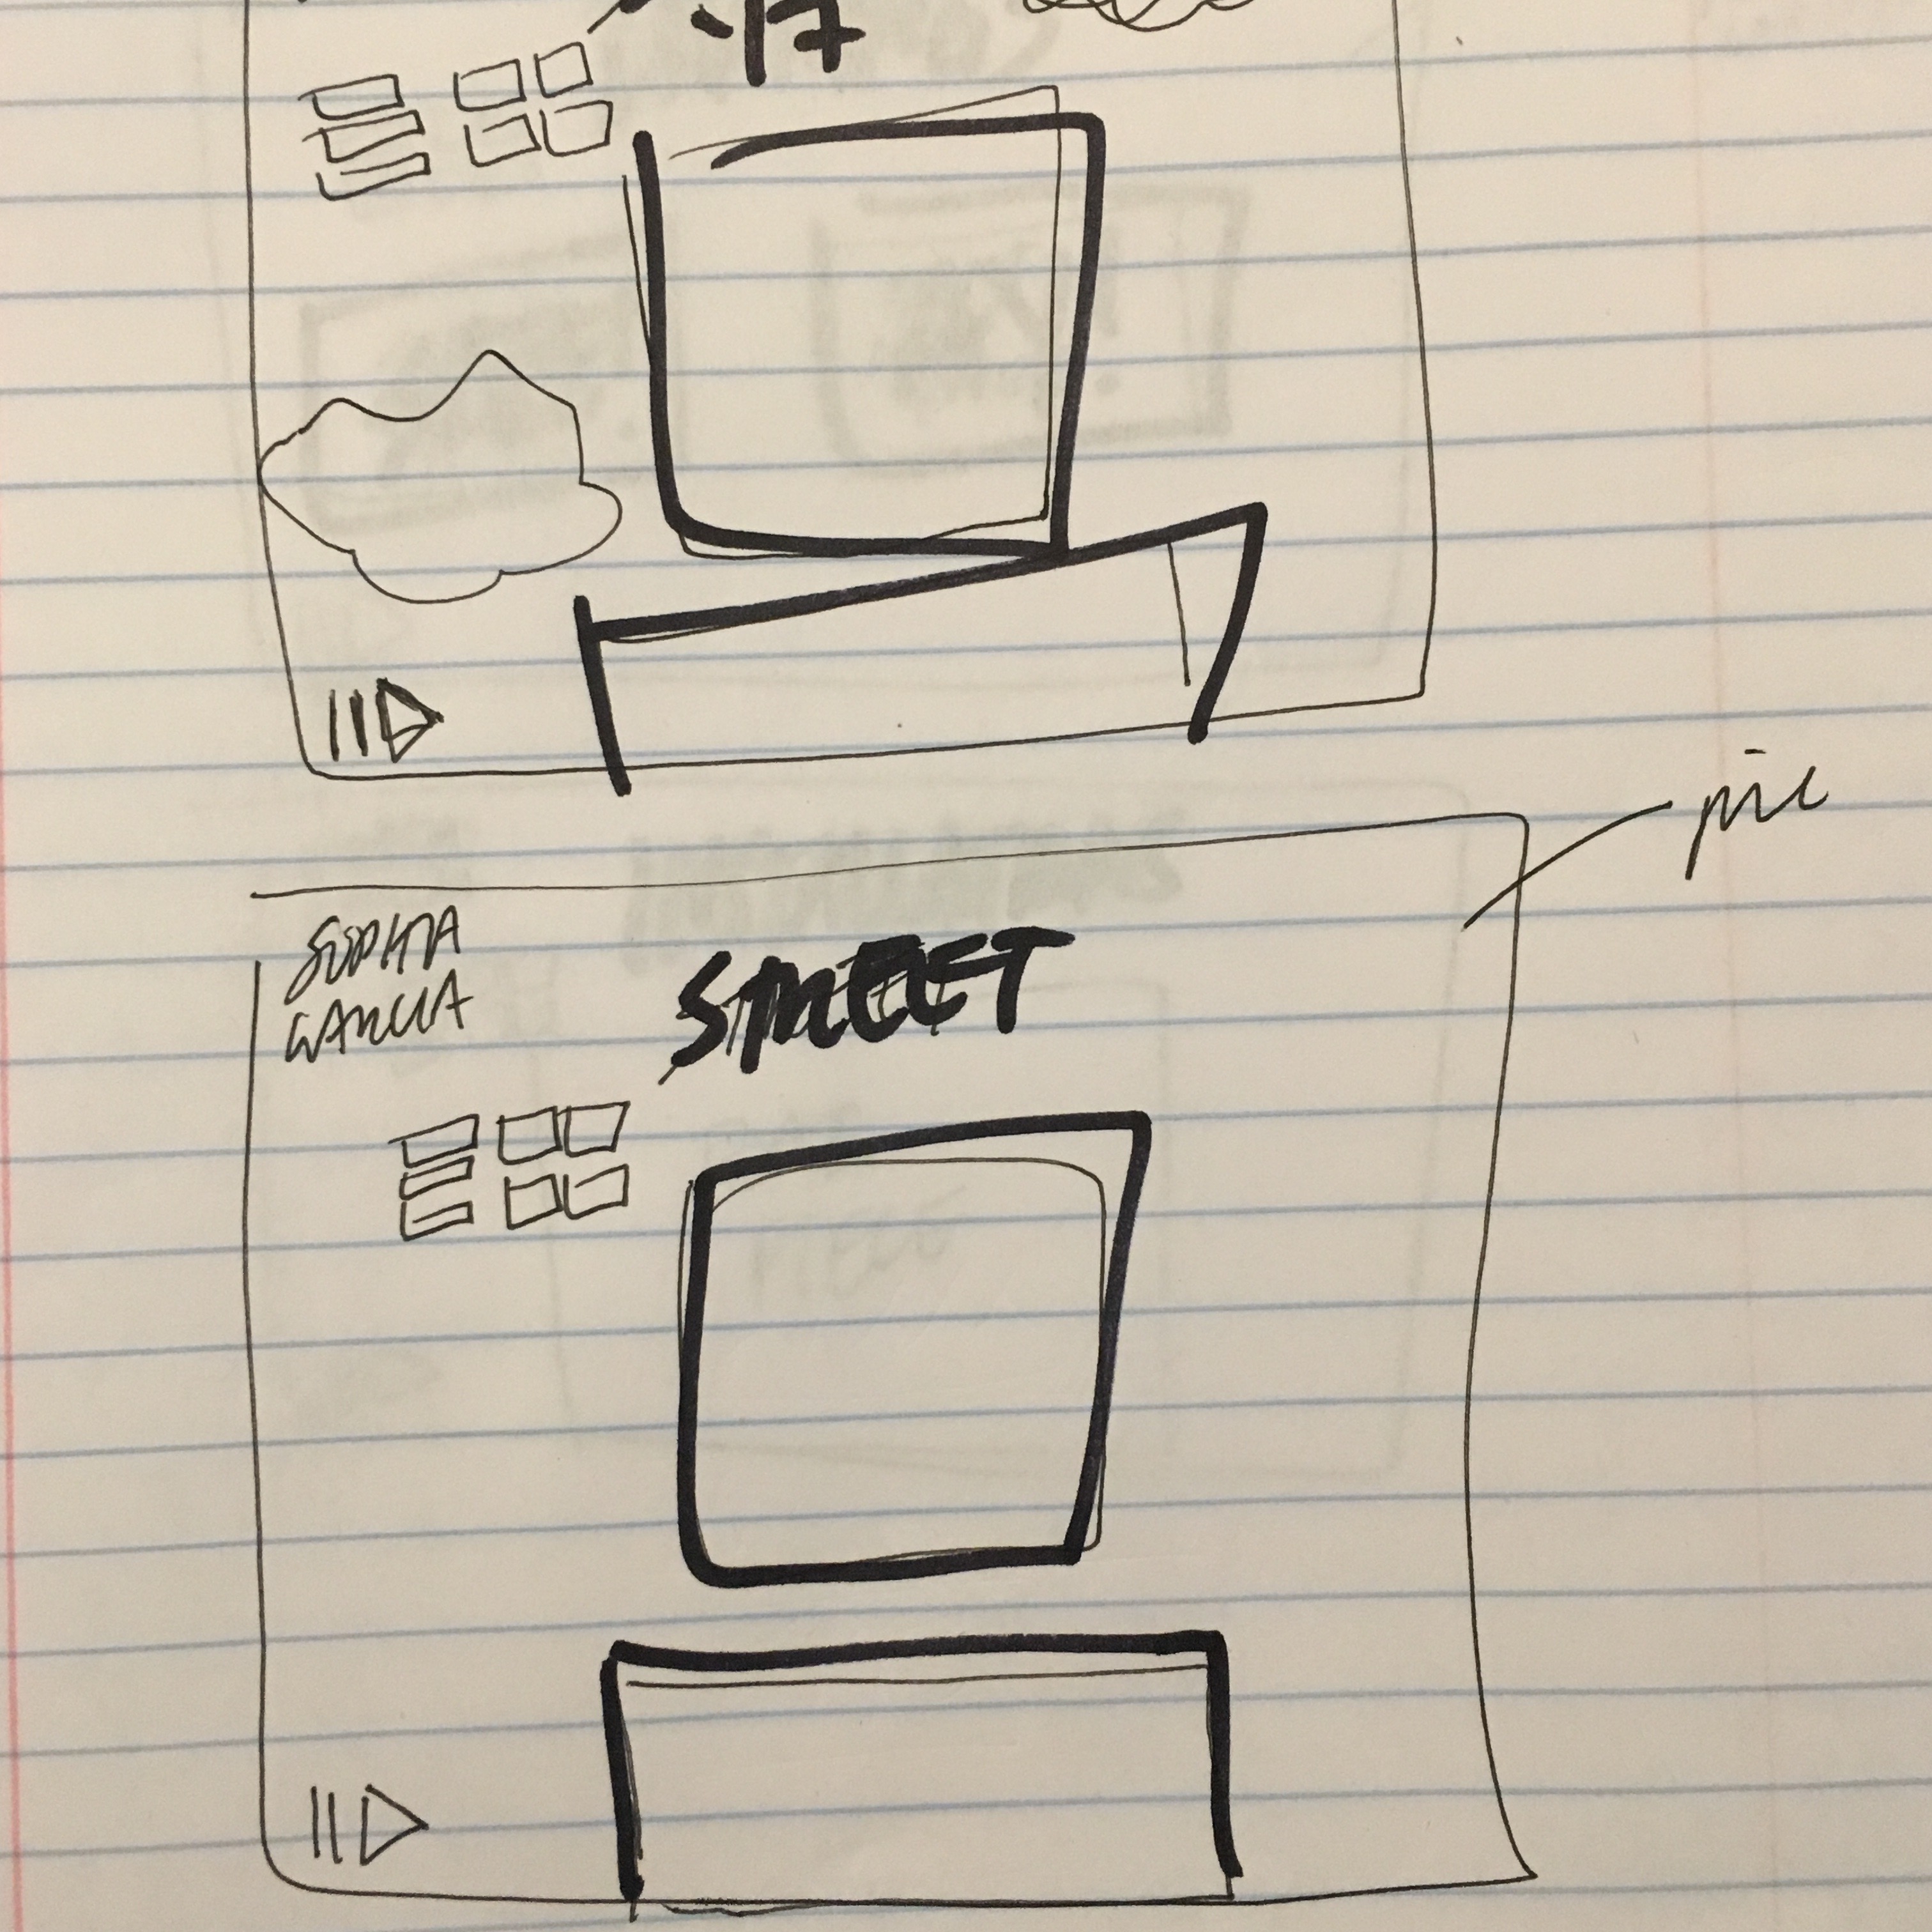 pic
SOPHIA
GARCIA
STREET